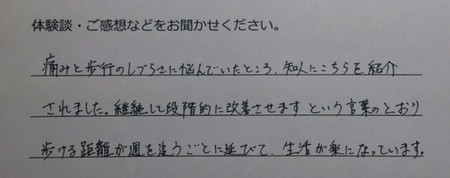 体験談・ご感想などをお聞かせください。
痛みと歩行のしづらさに悩んでいたところ、知人にこちらを紹介
されました。継続して段階的に改善させます という言葉のとおり
歩ける距離が週を追うごとに延びて、生活が楽になっています。